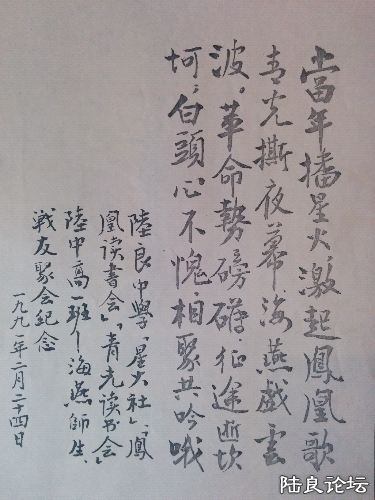 當年播星火，激起鳳凰歌
青光撕夜幕，海燕戲雲
波。革命勢磅礴，征途逝坎
坷，白頭心不愧，相聚共吟哦
陸良中學「星火社」、「鳳
凰读書会」、「青光读书会」
陸中高一班—海燕師生、
战友聚会纪念
一九九一年二月二十四日
陆良论坛